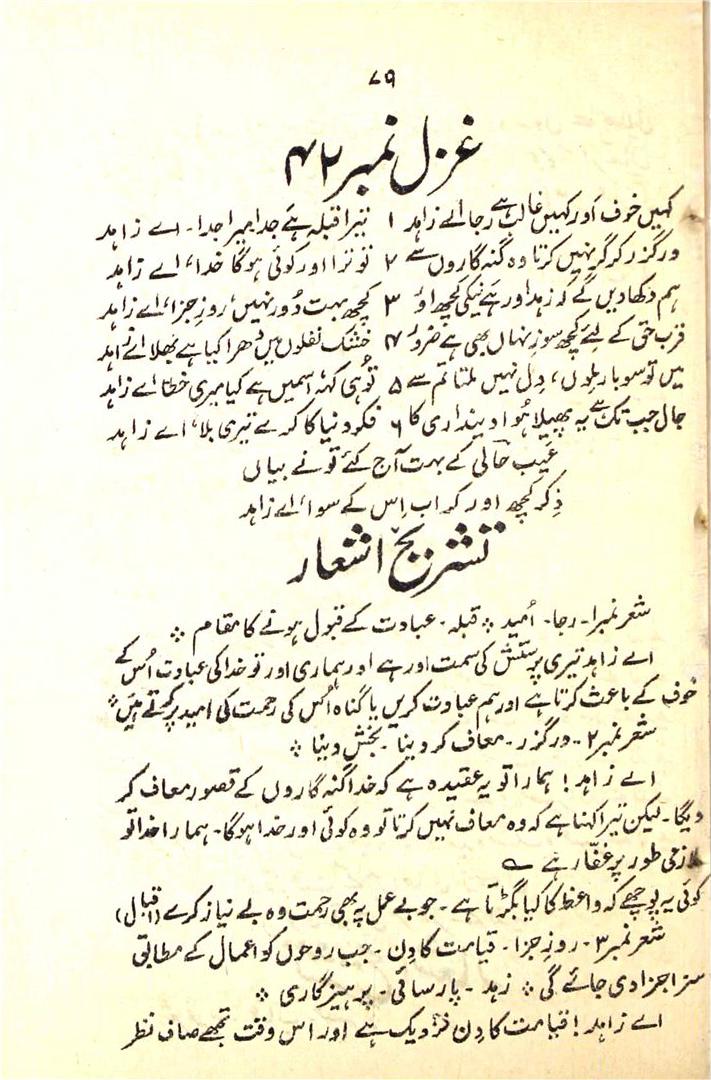 ۷۹
غزل نمبر ۴۲
کہیں خوف اور کہیں غالب ہے رجا اے زاہد ۱ تیرا قبلہ ہے جدا میرا جدا۔ اے زاہد
درگزر گر نہیں کرتا وہ گنہ گاروں سے ۲ تو ترا اور کوئی ہوگا خدا، اے زاہد
ہم دکھا دیں گے کہ زہد اور ہے نیکی کچھ اور ۳ کچھ بہت دُور نہیں، روزِ جزا، اے زاہد
قرب حق کے لئے کچھ سوزِ نہاں بھی ہے ضرور ۴ خشک نفلوں میں دھرا کیا ہے بھلا اے زاہد
میں تو سو بار ملوں، دِل نہیں ملتا تم سے ۵ تُو ہی کہہ اسمیں ہے کیا میری خطا اے زاہد
جال جب تک ہے یہ پھیلا ہُوا دینداری کا ۶ فکر دنیا کا کرے تیری بلا، اے زاہد
عَیب حالی کے بہت آج کئے تو نے بیاں
ذِکر کچھ اور کر اب اِس کے سوا، اے زاہد
تشریح اشعار
شعر نمبر ۱۔ رجا۔ اُمید ⁘ قبلہ۔ عبادت کے قبول ہونے کا مقام ⁘
اے زاہد تیری پرستش کی سمت اور ہے اور ہماری اور تو خدا کی عبادت اُس کے
خوف کے باعث کرتا ہے اور ہم عبادت کریں یا گناہ اُس کی رحمت کی امید پر کرتے ہیں ⁘
شعر نمبر ۲۔ درگزر۔ معاف کر دینا۔ بخش دینا ⁘
اے زاہد! ہمارا تو یہ عقیدہ ہے کہ خدا گنہ گاروں کے قصور معاف کر
دیگا۔ لیکن تیرا کہنا ہے کہ وہ معاف نہیں کرتا تو وہ کوئی اور خدا ہوگا۔ ہمارا خدا تو
لازمی طور پر غفّار ہے ؎
کوئی یہ پوچھے کہ واعظ کا کیا بگڑتا ہے۔ جو بے عمل پہ بھی رحمت وہ بے نیاز کرے (اقبال)
شعر نمبر ۳۔ روزِ جزا۔ قیامت کا دِن۔ جب روحوں کو اعمال کے مطابق
سزا جزا دی جائے گی ⁘ زہد۔ پارسائی۔ پرہیزگاری ⁘
اے زاہد! قیامت کا دِن نزدیک ہے اور اس وقت تجھے صاف نظر